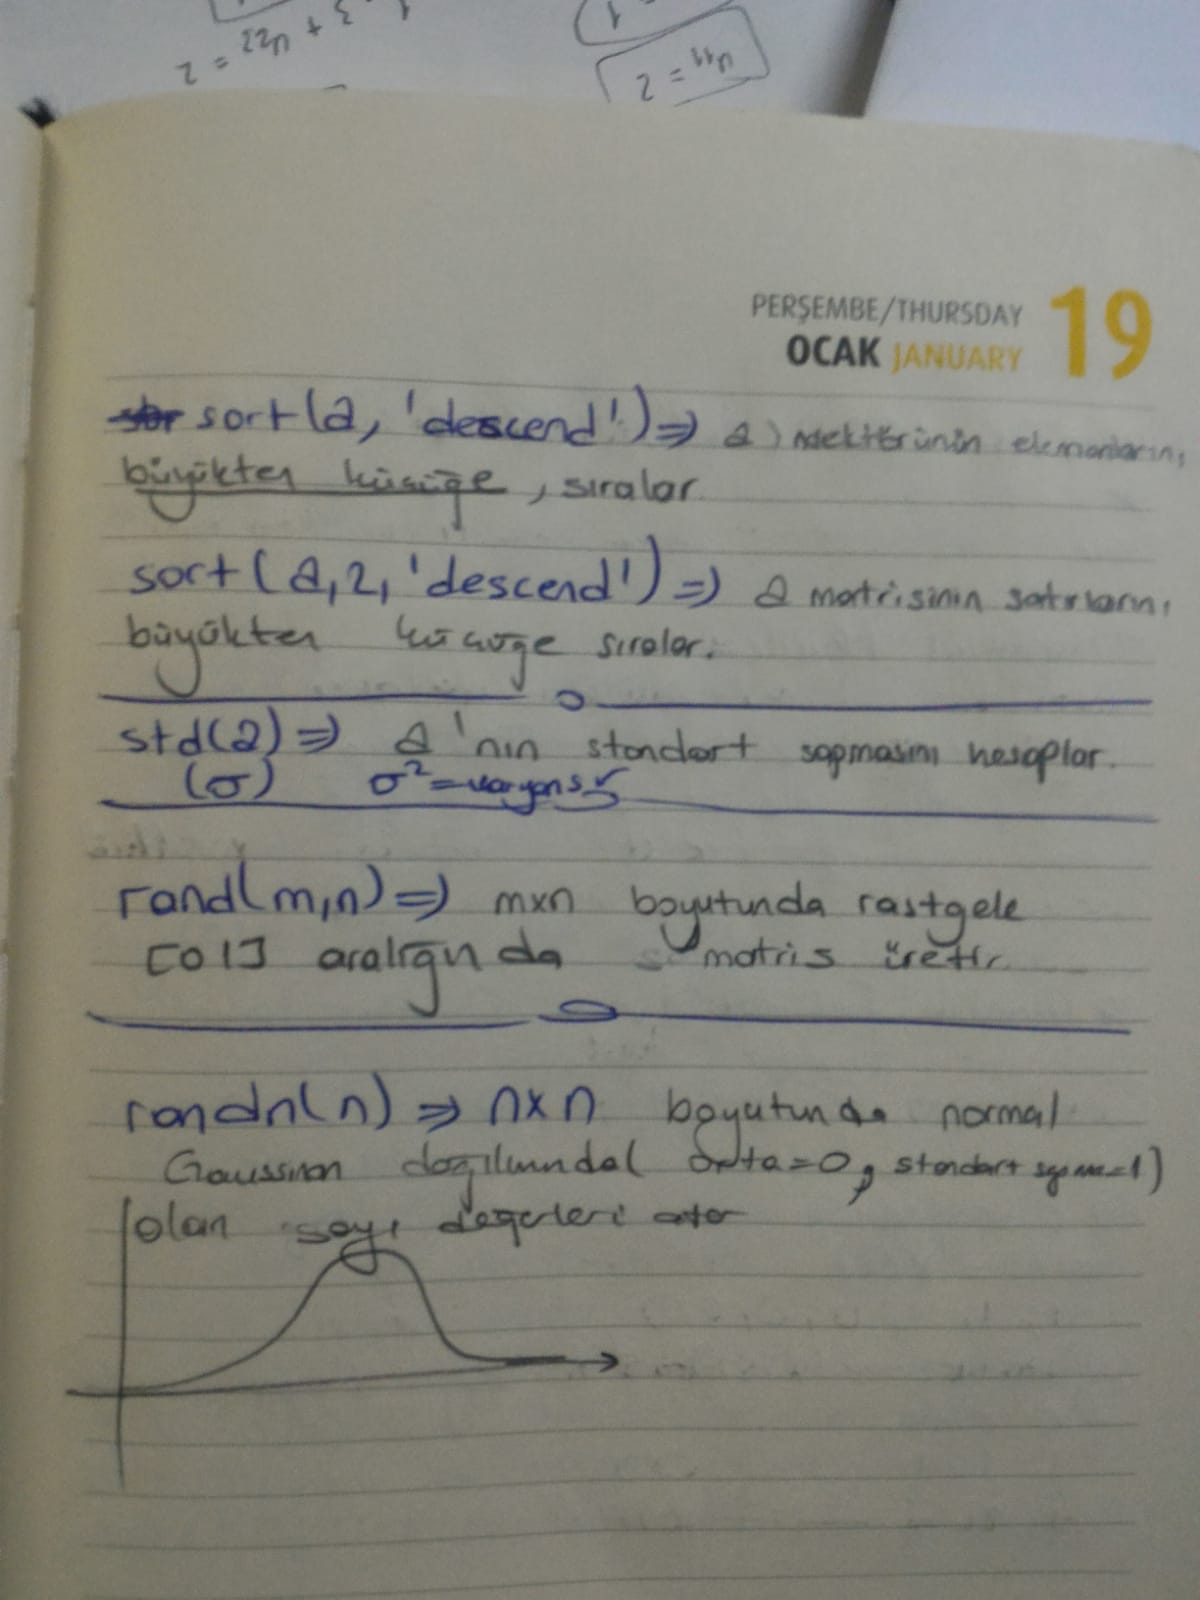 3 + u22 = 2
u11 = 2
PERŞEMBE/THURSDAY 19
OCAK JANUARY
sort(a, 'descend') => a vektörünün elemanlarını
büyükten küçüğe, sıralar
sort(a,2,'descend') => a matrisinin satırlarını
büyükten küçüğe sıralar.
std(a) => a'nın standart sapmasını hesaplar.
(σ) σ²=varyans
rand(m,n) => mxn boyutunda rastgele
[0 1] aralığında matris üretir.
randn(n) => nxn boyutunda normal
Gaussinan dağılımında( orta=0, standart sapma=1)
olan sayı değerleri atar